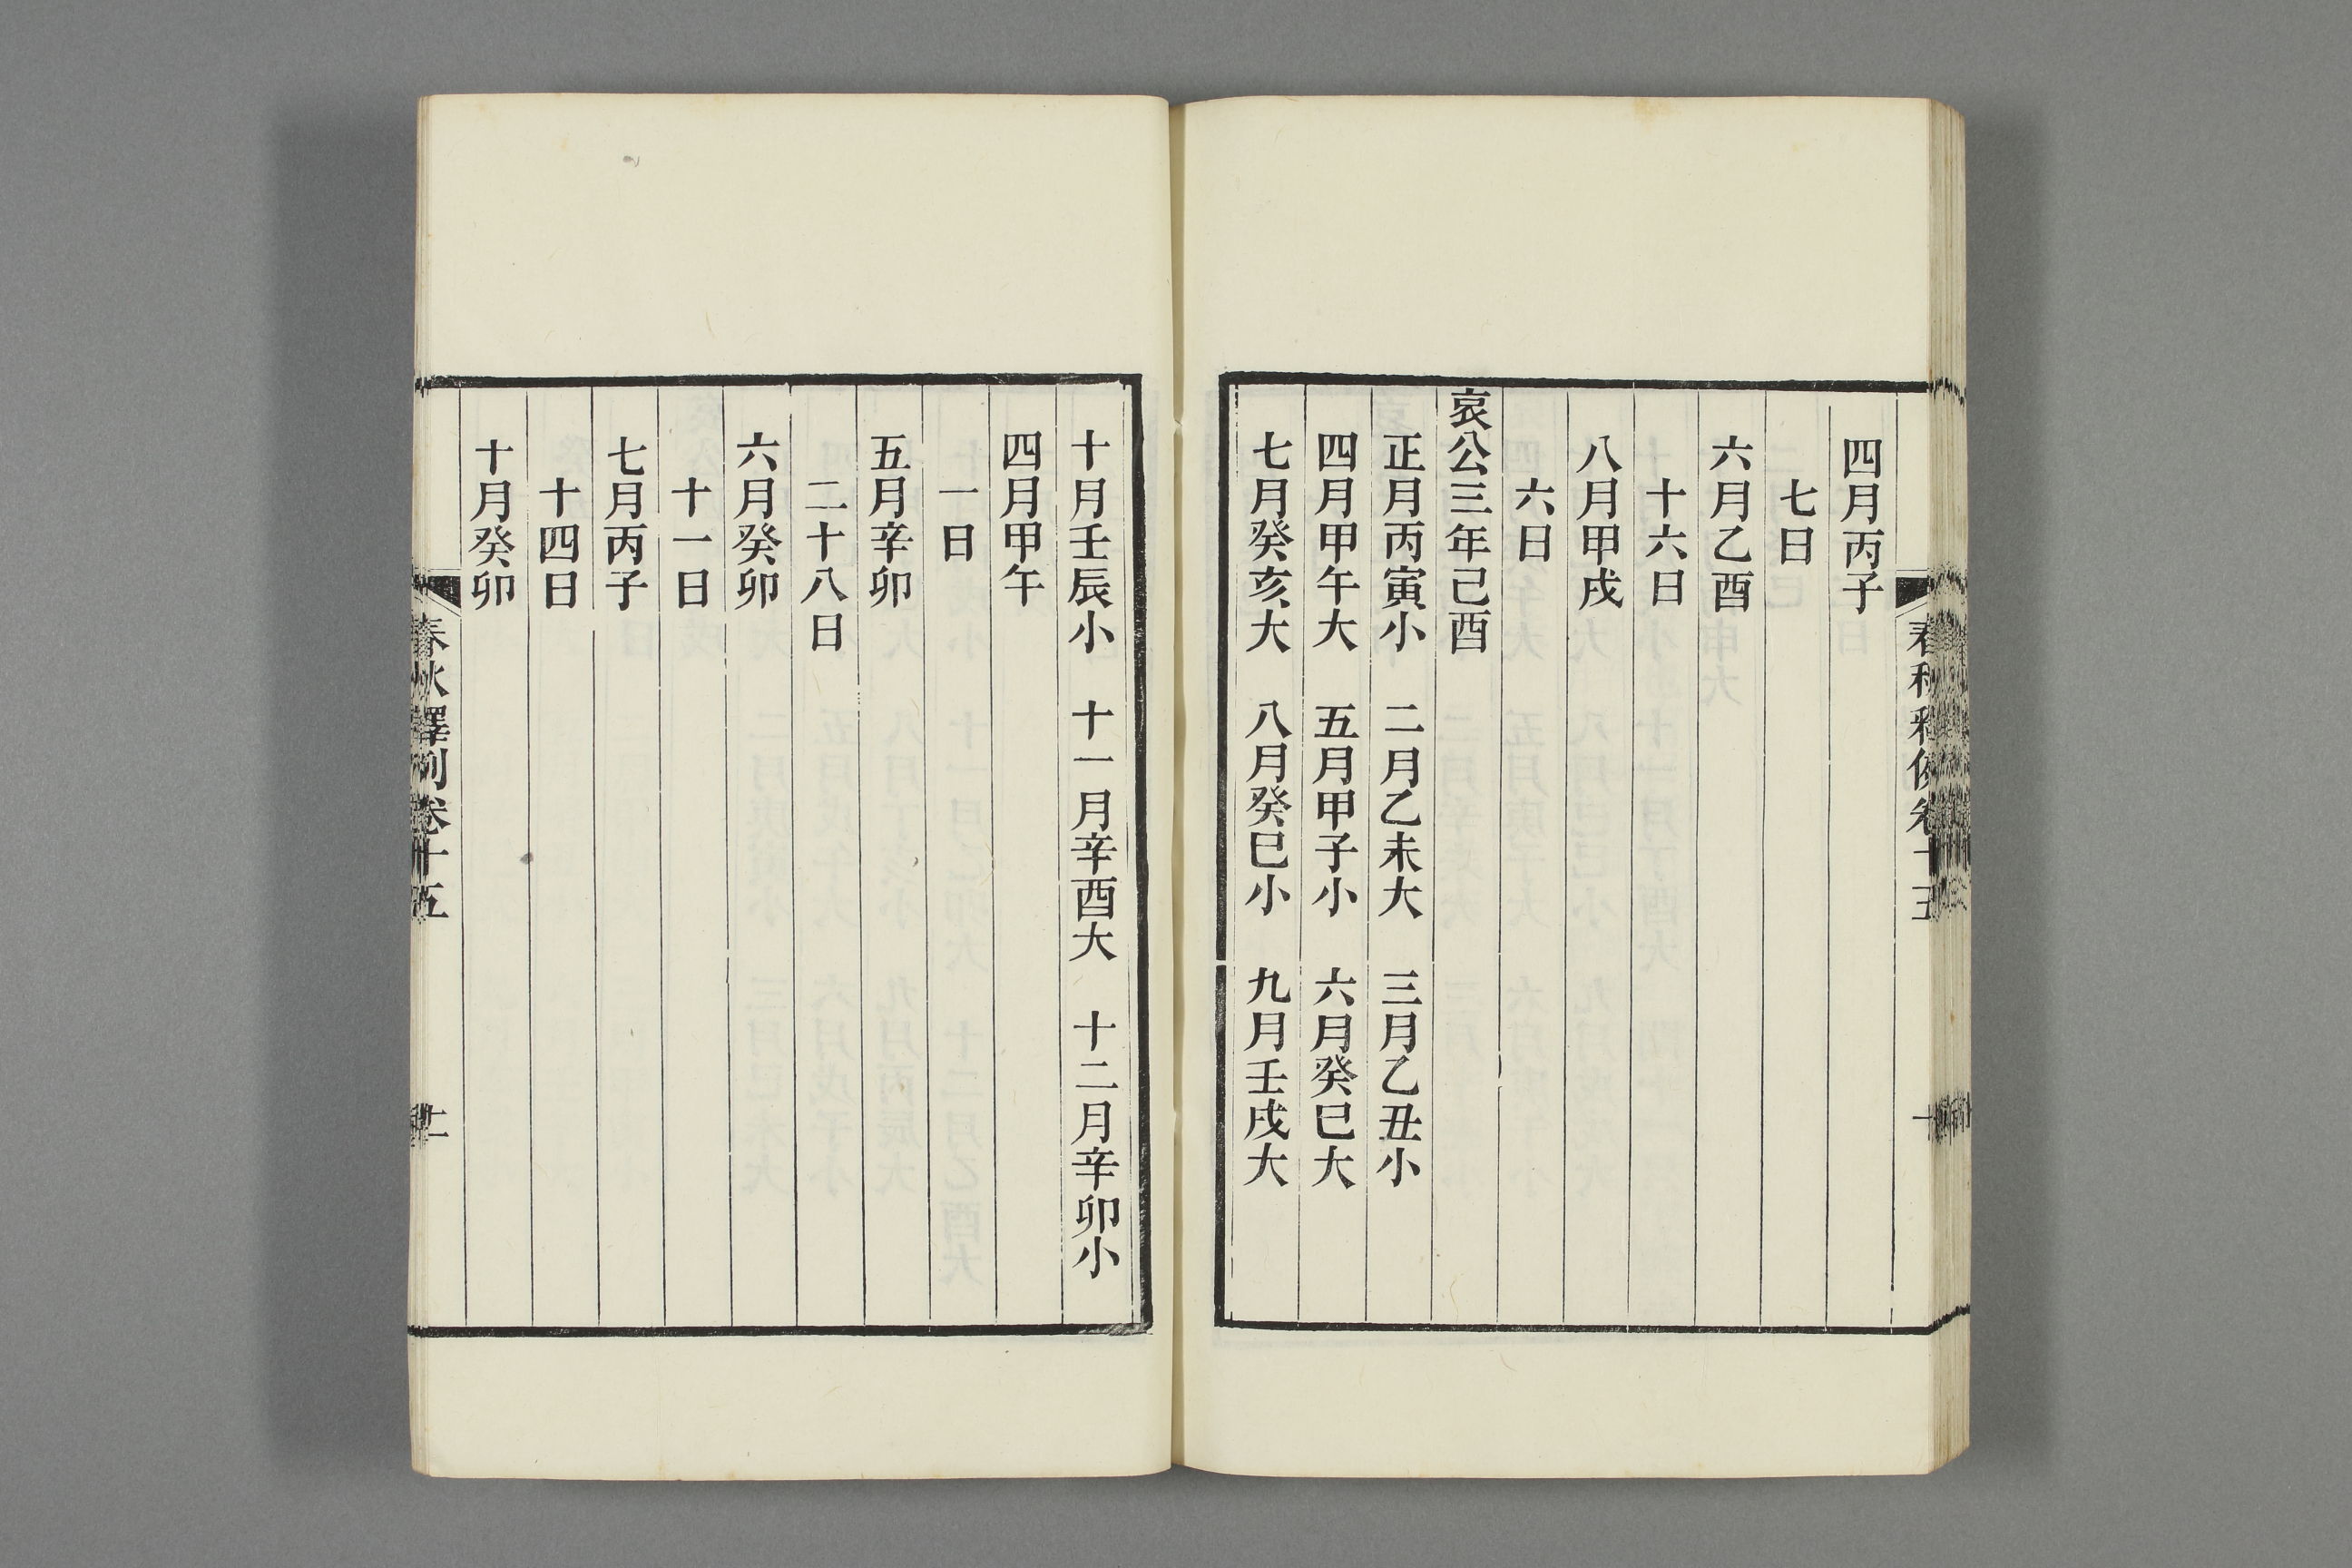 四月丙子
七日
六月乙酉
十六日
八月甲戌
六日
哀公三年己酉
正月丙寅小　二月乙未大　三月乙丑小
四月甲午大　五月甲子小　六月癸巳大
七月癸亥大　八月癸巳小　九月壬戌大
十月壬辰小　十一月辛酉大　十二月辛卯小
四月甲午
一日
五月辛卯
二十八日
六月癸卯
十一日
七月丙子
十四日
十月癸卯
春秋釋例卷十五